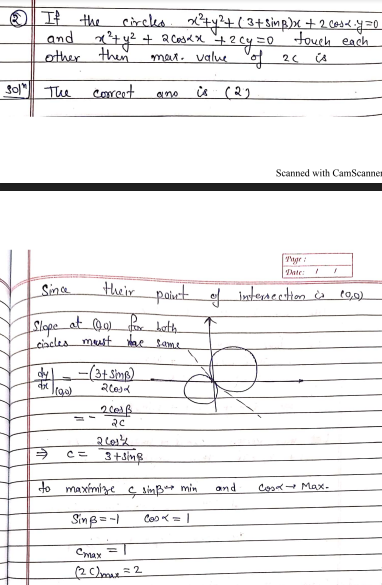 ② If the circles x²+y²+(3+sinβ)x+2cosα·y=0
and x²+y²+2cosαx+2cy=0 touch each
other then max. value of 2c is
solⁿ The correct ans is (2)
Scanned with CamScanner
Page :
Date: / /
Since their point of intersection is (0,0)
Slope at (0,0) for both
circles must be same
dy/dx|(0,0) = -(3+sinβ)/2cosα
= -2cosβ/2c
⇒ c = 2cos²α/3+sinβ
to maximize c, sinβ→ min and cosα→ Max.
Sinβ=-1 Cosα=1
Cmax = 1
(2c)max = 2